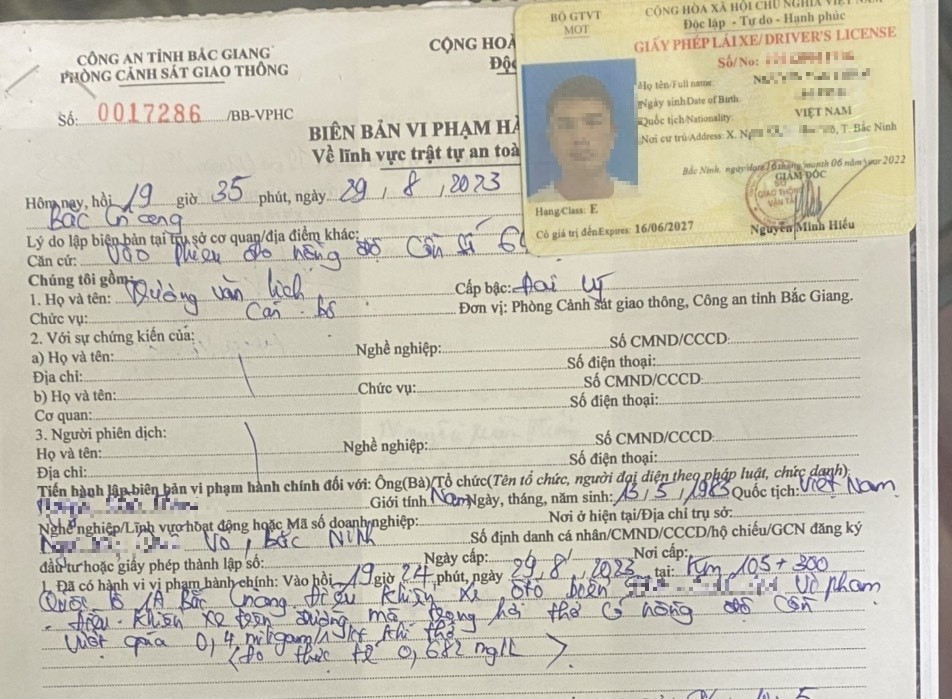 CÔNG AN TỈNH BẮC GIANG
PHÒNG CẢNH SÁT GIAO THÔNG
Số: 0017286 /BB-VPHC
CỘNG HOÀ
Độc
BIÊN BẢN VI PHẠM HÀ
Về lĩnh vực trật tự an toà
BỘ GTVT
MOT
CỘNG HÒA XÃ HỘI CHỦ NGHĨA VIỆT NAM
Độc lập - Tự do - Hạnh phúc
GIẤY PHÉP LÁI XE/DRIVER'S LICENSE
Số/No:
Họ tên/Full name
Ngày sinh/Date of Birth
Quốc tịch/Nationality: VIỆT NAM
Nơi cư trú/Address: X. T. Bắc Ninh
Bắc Ninh, ngày/date 16 tháng/month 06 năm/year 2022
GIÁM ĐỐC
Nguyễn Minh Hiếu
Hạng/Class: E
Có giá trị đến/Expires: 16/06/2027
Hôm nay, hồi 19 giờ 35 phút, ngày 29, 8, 2023
Bắc Giang
Lý do lập biên bản tại trụ sở cơ quan/địa điểm khác:
Căn cứ: Vào phiếu đo nồng độ cồn số
Chúng tôi gồm:
1. Họ và tên: Dương Văn Lịch Cấp bậc: Đại uý
Chức vụ: Cán bộ Đơn vị: Phòng Cảnh sát giao thông, Công an tỉnh Bắc Giang.
2. Với sự chứng kiến của:
a) Họ và tên: Nghề nghiệp: Số CMND/CCCD:
Địa chỉ: Số điện thoại:
b) Họ và tên: Chức vụ: Số CMND/CCCD:
Cơ quan: Số điện thoại:
3. Người phiên dịch:
Họ và tên: Nghề nghiệp: Số CMND/CCCD:
Địa chỉ: Số điện thoại:
Tiến hành lập biên bản vi phạm hành chính đối với: Ông(Bà)/Tổ chức(Tên tổ chức, người đại diện theo pháp luật, chức danh):
Giới tính Nam Ngày, tháng, năm sinh: 15, 5, 1983 Quốc tịch: Việt Nam
Nghề nghiệp/Lĩnh vực hoạt động hoặc Mã số doanh nghiệp: Nơi ở hiện tại/Địa chỉ trụ sở:
Võ, Bắc Ninh Số định danh cá nhân/CMND/CCCD/hộ chiếu/GCN đăng ký
đầu tư hoặc giấy phép thành lập số: Ngày cấp: Nơi cấp:
1. Đã có hành vi vi phạm hành chính: Vào hồi 19 giờ 24 phút, ngày 29, 8, 2023 tại: Km 105+300
Quốc lộ 1A Bắc Giang điều khiển xe ôtô biển Vi phạm
- điều khiển xe trên đường mà trong hơi thở có nồng độ cồn
vượt quá 0,4 miligam/1 lít khí thở
(đo thực tế 0,682 mg/L)